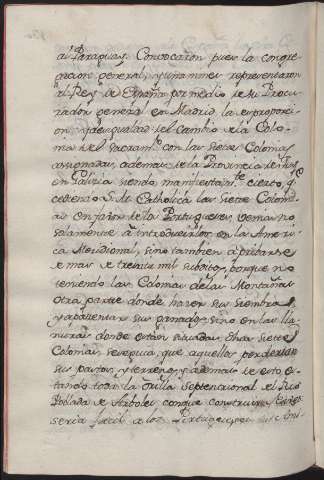 al Paraguay, Convocaron pues la congre
gacion general, y unanimes representaron
al Rey de España por medio de su Procu
rador general en Madrid la
y desigualdad del Cambio de la Colo
nia del Sacram.to con las siete Colonias
a mas, ademas de la Provincia de
en Galizia siendo manifestam.te cierto, q.e
cediendo S. M. Catholica las siete Coloni
as en favor de los Portugueses, vemos no
solamente a introducirlos en la Ameri
ca Meridional, sino tambien a privarse
de mas de treinta mil subditos, porque no
teniendo las Colonias de las Montañas
otra parte donde hazer sus siembras
y apacentar sus ganados, sino en las lla
nuras donde estan situadas dhas siete
Colonias, se seguia que aquellos perderian
sus pastos, y terreno, y ademas de esto es
tando toda la orilla Septencional del Rio
Poblada de Arboles conque construir
seria facil a los Portugueses